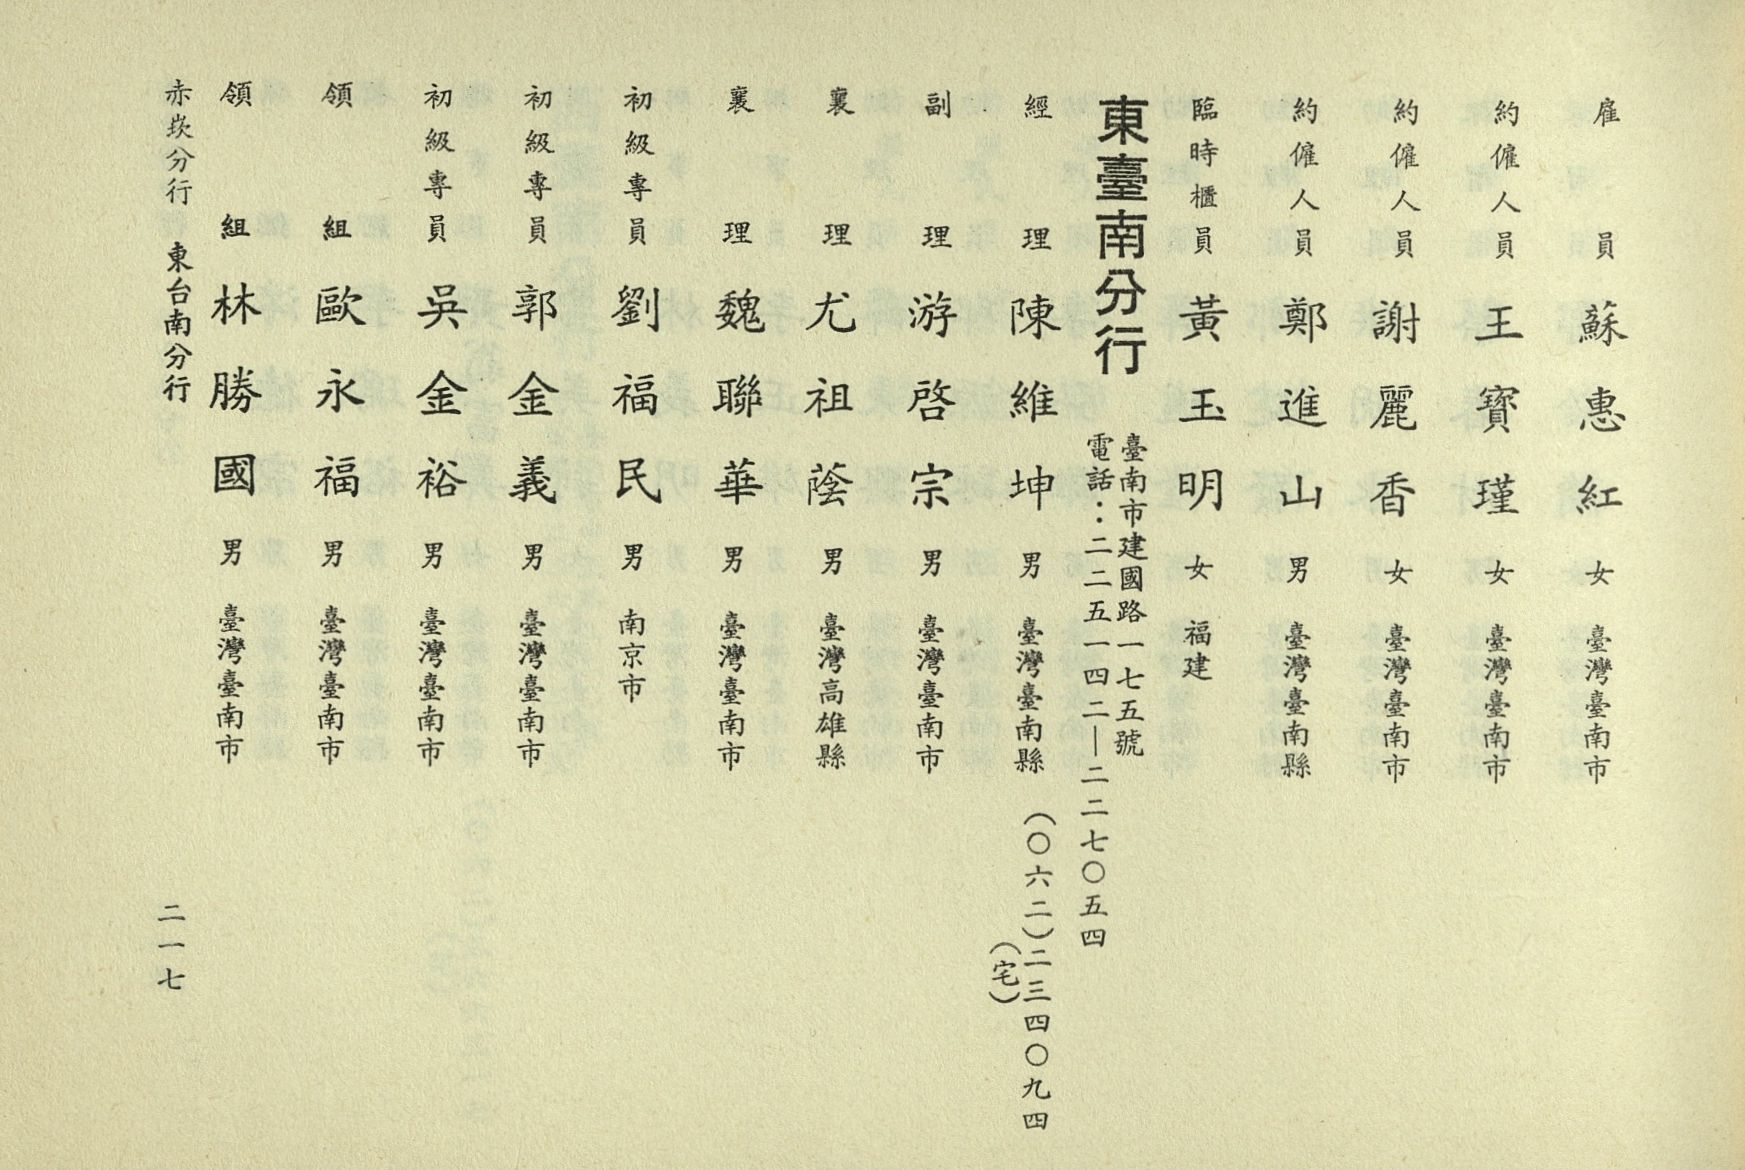 雇員 蘇惠紅 女 臺灣臺南市
約僱人員 王寶瑾 女 臺灣臺南市
約僱人員 謝麗香 女 臺灣臺南市
約僱人員 鄭進山 男 臺灣臺南縣
臨時櫃員 黃玉明 女 福建
東臺南分行
臺南市建國路一七五號
電話：二二五一四二—二二七〇五四
經理 陳維坤 男 臺灣臺南縣 (〇六二)二三四〇九四
(宅)
副理 游啓宗 男 臺灣臺南市
襄理 尤祖蔭 男 臺灣高雄縣
襄理 魏聯華 男 臺灣臺南市
初級專員 劉福民 男 南京市
初級專員 郭金義 男 臺灣臺南市
初級專員 吳金裕 男 臺灣臺南市
領組 歐永福 男 臺灣臺南市
領組 林勝國 男 臺灣臺南市
赤崁分行 東台南分行
二一七